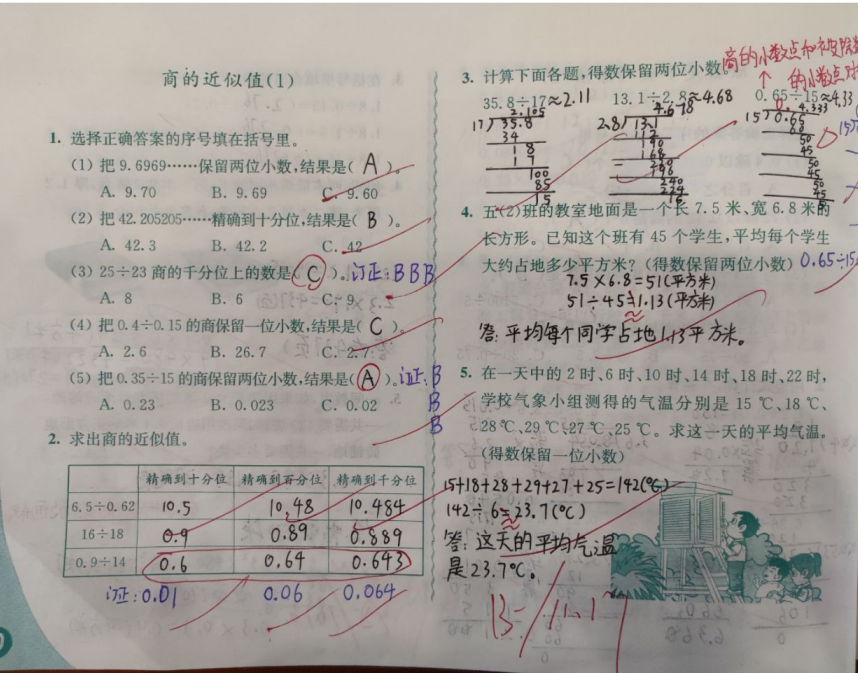 商的近似值(1)
1. 选择正确答案的序号填在括号里。
(1) 把 9.6969……保留两位小数,结果是( A )。
A. 9.70 B. 9.69 C. 9.60
(2) 把 42.205205……精确到十分位,结果是( B )。
A. 42.3 B. 42.2 C. 42
(3) 25÷23 商的千分位上的数是( C )。订正:BBB
A. 8 B. 6 C. 9
(4) 把 0.4÷0.15 的商保留一位小数,结果是( C )。
A. 2.6 B. 26.7 C. 2.7
(5) 把 0.35÷15 的商保留两位小数,结果是( A )。订正:B
B
B
A. 0.23 B. 0.023 C. 0.02
2. 求出商的近似值。
精确到十分位 精确到百分位 精确到千分位
6.5÷0.62 10.5 10.48 10.484
16÷18 0.9 0.89 0.889
0.9÷14 0.6 0.64 0.643
订正:0.01 0.06 0.064
3. 计算下面各题,得数保留两位小数。
商的小数点和被除数
的小数点对
35.8÷17≈2.11 13.1÷2.8≈4.68 0.65÷15≈4.33
2.105
17 35.8
34
1 8
1 7
100
85
15
4.678
2.8 13.1
112
190
168
220
196
240
224
16
0.4.333
15 0.65
60
50
45
50
45
50
45
5
4. 五(2)班的教室地面是一个长 7.5 米、宽 6.8 米的
长方形。已知这个班有 45 个学生,平均每个学生
大约占地多少平方米?(得数保留两位小数) 0.65÷15
7.5×6.8=51(平方米)
51÷45≈1.13(平方米)
答:平均每个同学占地1.13平方米。
5. 在一天中的 2 时、6 时、10 时、14 时、18 时、22 时,
学校气象小组测得的气温分别是 15 ℃、18 ℃、
28 ℃、29 ℃、27 ℃、25 ℃。求这一天的平均气温。
(得数保留一位小数)
15+18+28+29+27+25=142(℃)
142÷6≈23.7(℃)
答:这天的平均气温
是23.7℃。